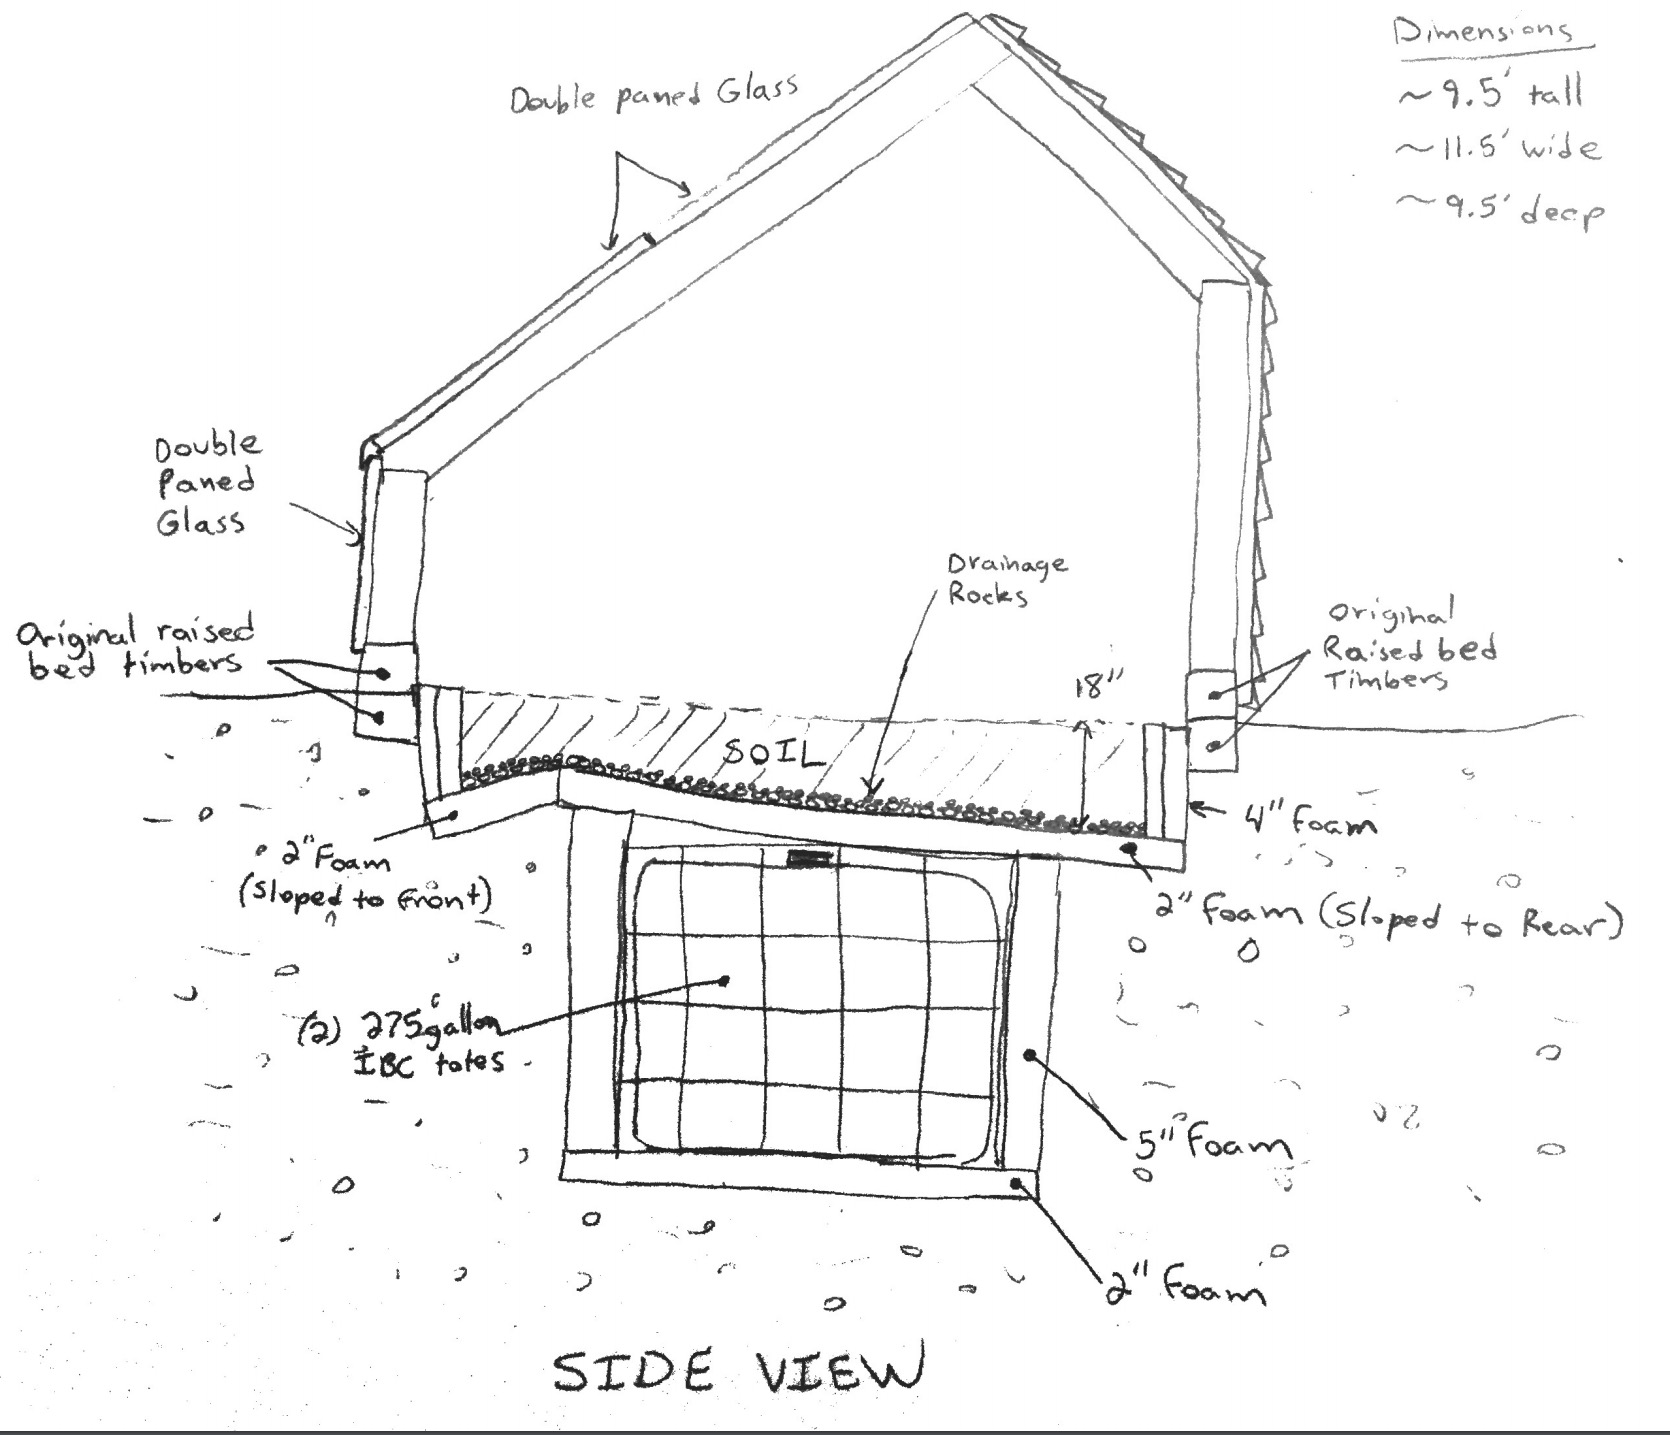 Dimensions
~ 9.5' tall
~ 11.5' wide
~ 9.5' deep
Double paned Glass
Double
Paned
Glass
Drainage
Rocks
Original raised
bed timbers
Original
Raised bed
Timbers
18"
SOIL
4" Foam
2" Foam
(Sloped to front)
2" Foam (Sloped to Rear)
(2) 275 gallon
IBC totes
5" Foam
2" Foam
SIDE VIEW